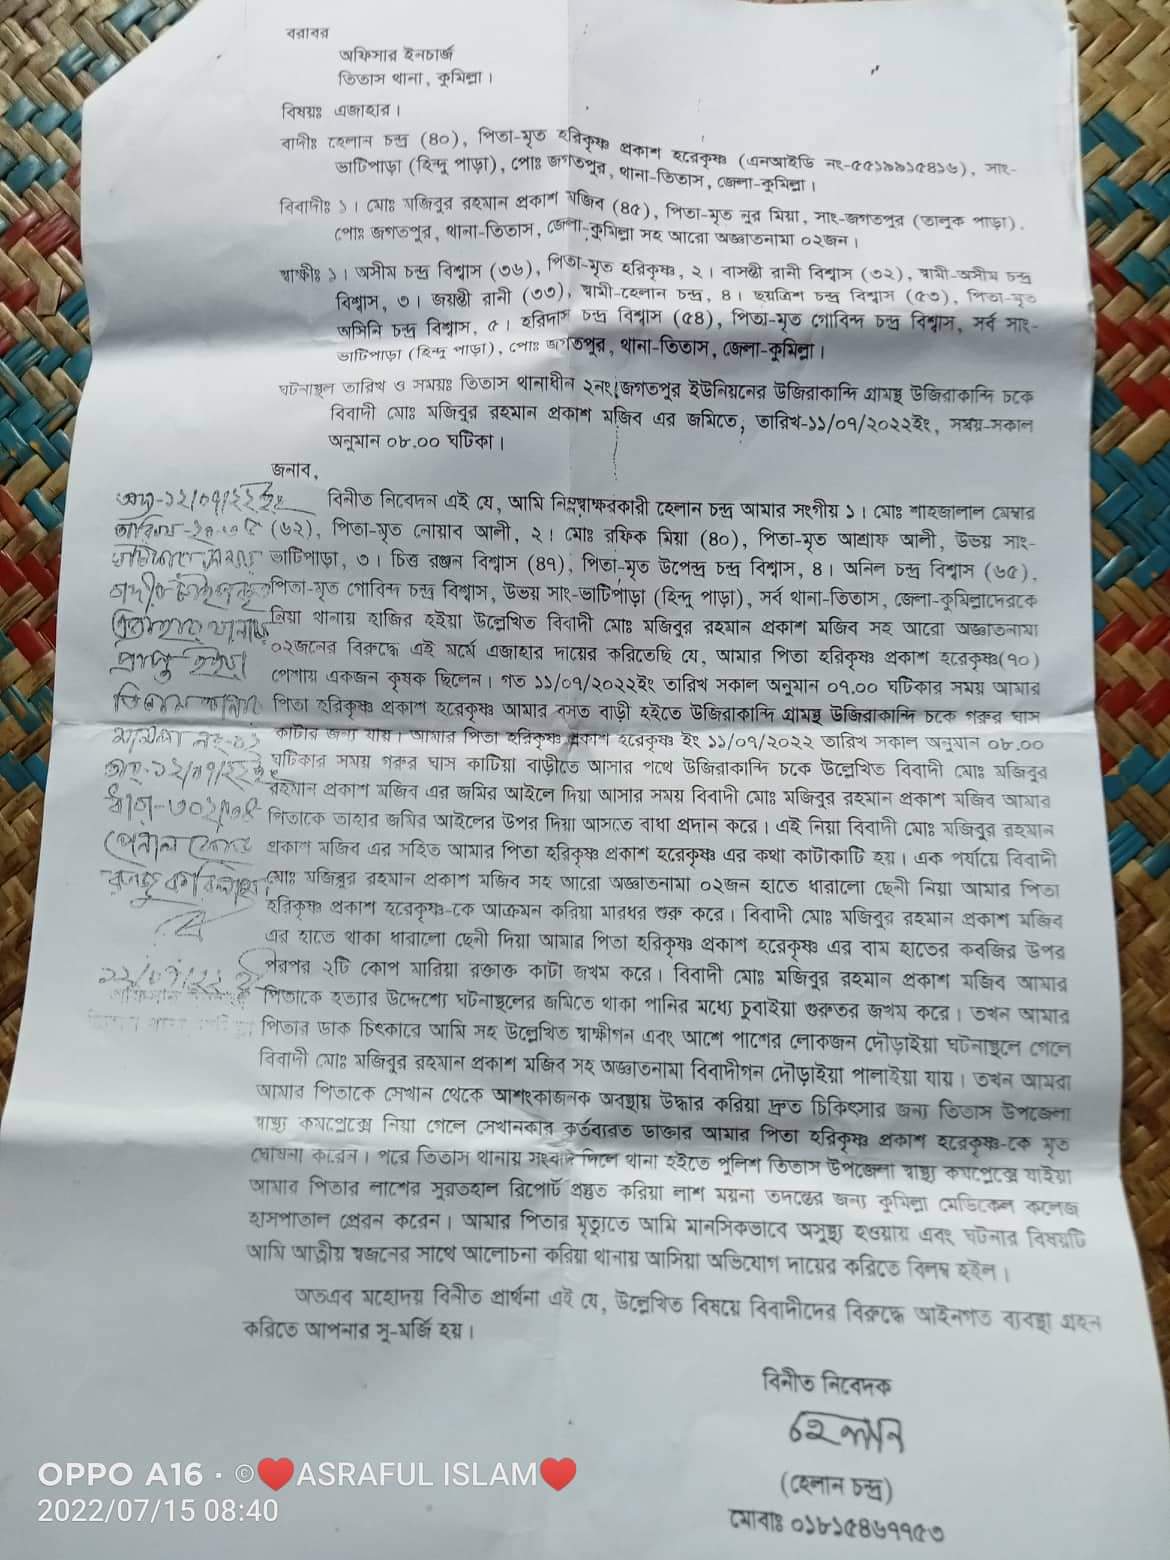 বরাবর
অফিসার ইনচার্জ
তিতাস থানা, কুমিল্লা।
বিষয়ঃ এজাহার।
বাদীঃ হেলান চন্দ্র (৪০), পিতা-মৃত হরিকৃষ্ণ প্রকাশ হরেকৃষ্ণ (এনআইডি নং-৫৫১৯৯১৫৪১৬), সাং-
ভাটিপাড়া (হিন্দু পাড়া), পোঃ জগতপুর, থানা-তিতাস, জেলা-কুমিল্লা।
বিবাদীঃ ১। মোঃ মজিবুর রহমান প্রকাশ মজিব (৪৫), পিতা-মৃত নুর মিয়া, সাং-জগতপুর (তালুক পাড়া),
পোঃ জগতপুর, থানা-তিতাস, জেলা-কুমিল্লা সহ আরো অজ্ঞাতনামা ০২জন।
স্বাক্ষীঃ ১। অসীম চন্দ্র বিশ্বাস (৩৬), পিতা-মৃত হরিকৃষ্ণ, ২। বাসন্তী রানী বিশ্বাস (৩২), স্বামী-অসীম চন্দ্র
বিশ্বাস, ৩। জয়ন্তী রানী (৩৩), স্বামী-হেলান চন্দ্র, ৪। ছয়ত্রিশ চন্দ্র বিশ্বাস (৫৩), পিতা-মৃত
অসিনি চন্দ্র বিশ্বাস, ৫। হরিদাস চন্দ্র বিশ্বাস (৫৪), পিতা-মৃত গোবিন্দ চন্দ্র বিশ্বাস, সর্ব সাং-
ভাটিপাড়া (হিন্দু পাড়া), পোঃ জগতপুর, থানা-তিতাস, জেলা-কুমিল্লা।
ঘটনাস্থল তারিখ ও সময়ঃ তিতাস থানাধীন ২নং জগতপুর ইউনিয়নের উজিরাকান্দি গ্রামস্থ উজিরাকান্দি চকে
বিবাদী মোঃ মজিবুর রহমান প্রকাশ মজিব এর জমিতে, তারিখ-১১/০৭/২০২২ইং, সময়-সকাল
অনুমান ০৮.০০ ঘটিকা।
জনাব,
বিনীত নিবেদন এই যে, আমি নিম্নস্বাক্ষরকারী হেলান চন্দ্র আমার সংগীয় ১। মোঃ শাহজালাল মেম্বার
(৬২), পিতা-মৃত নোয়াব আলী, ২। মোঃ রফিক মিয়া (৪০), পিতা-মৃত আশ্রাফ আলী, উভয় সাং-
ভাটিপাড়া, ৩। চিত্ত রঞ্জন বিশ্বাস (৪৭), পিতা-মৃত উপেন্দ্র চন্দ্র বিশ্বাস, ৪। অনিল চন্দ্র বিশ্বাস (৬৫),
পিতা-মৃত গোবিন্দ চন্দ্র বিশ্বাস, উভয় সাং-ভাটিপাড়া (হিন্দু পাড়া), সর্ব থানা-তিতাস, জেলা-কুমিল্লাদেরকে
নিয়া থানায় হাজির হইয়া উল্লেখিত বিবাদী মোঃ মজিবুর রহমান প্রকাশ মজিব সহ আরো অজ্ঞাতনামা
০২জনের বিরুদ্ধে এই মর্মে এজাহার দায়ের করিতেছি যে, আমার পিতা হরিকৃষ্ণ প্রকাশ হরেকৃষ্ণ(৭০)
পেশায় একজন কৃষক ছিলেন। গত ১১/০৭/২০২২ইং তারিখ সকাল অনুমান ০৭.০০ ঘটিকার সময় আমার
পিতা হরিকৃষ্ণ প্রকাশ হরেকৃষ্ণ আমার বসত বাড়ী হইতে উজিরাকান্দি গ্রামস্থ উজিরাকান্দি চকে গরুর ঘাস
কাটার জন্য যায়। আমার পিতা হরিকৃষ্ণ প্রকাশ হরেকৃষ্ণ ইং ১১/০৭/২০২২ তারিখ সকাল অনুমান ০৮.০০
ঘটিকার সময় গরুর ঘাস কাটিয়া বাড়ীতে আসার পথে উজিরাকান্দি চকে উল্লেখিত বিবাদী মোঃ মজিবুর
রহমান প্রকাশ মজিব এর জমির আইলে দিয়া আসার সময় বিবাদী মোঃ মজিবুর রহমান প্রকাশ মজিব আমার
পিতাকে তাহার জমির আইলের উপর দিয়া আসতে বাধা প্রদান করে। এই নিয়া বিবাদী মোঃ মজিবুর রহমান
প্রকাশ মজিব এর সহিত আমার পিতা হরিকৃষ্ণ প্রকাশ হরেকৃষ্ণ এর কথা কাটাকাটি হয়। এক পর্যায়ে বিবাদী
মোঃ মজিবুর রহমান প্রকাশ মজিব সহ আরো অজ্ঞাতনামা ০২জন হাতে ধারালো ছেনী নিয়া আমার পিতা
হরিকৃষ্ণ প্রকাশ হরেকৃষ্ণ-কে আক্রমন করিয়া মারধর শুরু করে। বিবাদী মোঃ মজিবুর রহমান প্রকাশ মজিব
এর হাতে থাকা ধারালো ছেনী দিয়া আমার পিতা হরিকৃষ্ণ প্রকাশ হরেকৃষ্ণ এর বাম হাতের কবজির উপর
পরপর ২টি কোপ মারিয়া রক্তাক্ত কাটা জখম করে। বিবাদী মোঃ মজিবুর রহমান প্রকাশ মজিব আমার
পিতাকে হত্যার উদ্দেশ্যে ঘটনাস্থলের জমিতে থাকা পানির মধ্যে চুবাইয়া গুরুতর জখম করে। তখন আমার
পিতার ডাক চিৎকারে আমি সহ উল্লেখিত স্বাক্ষীগন এবং আশে পাশের লোকজন দৌড়াইয়া ঘটনাস্থলে গেলে
বিবাদী মোঃ মজিবুর রহমান প্রকাশ মজিব সহ অজ্ঞাতনামা বিবাদীগন দৌড়াইয়া পালাইয়া যায়। তখন আমরা
আমার পিতাকে সেখান থেকে আশংকাজনক অবস্থায় উদ্ধার করিয়া দ্রুত চিকিৎসার জন্য তিতাস উপজেলা
স্বাস্থ্য কমপ্লেক্সে নিয়া গেলে সেখানকার কর্তব্যরত ডাক্তার আমার পিতা হরিকৃষ্ণ প্রকাশ হরেকৃষ্ণ-কে মৃত
ঘোষনা করেন। পরে তিতাস থানায় সংবাদ দিলে থানা হইতে পুলিশ তিতাস উপজেলা স্বাস্থ্য কমপ্লেক্সে যাইয়া
আমার পিতার লাশের সুরতহাল রিপোর্ট প্রস্তুত করিয়া লাশ ময়না তদন্তের জন্য কুমিল্লা মেডিকেল কলেজ
হাসপাতাল প্রেরন করেন। আমার পিতার মৃত্যুতে আমি মানসিকভাবে অসুস্থ্য হওয়ায় এবং ঘটনার বিষয়টি
আমি আত্নীয় স্বজনের সাথে আলোচনা করিয়া থানায় আসিয়া অভিযোগ দায়ের করিতে বিলম্ব হইল।
অতএব মহোদয় বিনীত প্রার্থনা এই যে, উল্লেখিত বিষয়ে বিবাদীদের বিরুদ্ধে আইনগত ব্যবস্থা গ্রহন
করিতে আপনার সু-মর্জি হয়।
অদ্য-১২/০৭/২২ইং
এজাহার থানায়
প্রাপ্ত হইয়া
তিতাস থানার
মামলা নং-০১
তাং-১২/০৭/২২ইং
ধারা-৩০২/৩৪
পেনাল কোড
রুজু করিলাম।
১২/০৭/২২ইং
বিনীত নিবেদক
হেলান
(হেলান চন্দ্র)
মোবাঃ ০১৮১৫৪৬৭৭৫৩
OPPO A16 · ©❤️ASRAFUL ISLAM❤️
2022/07/15 08:40